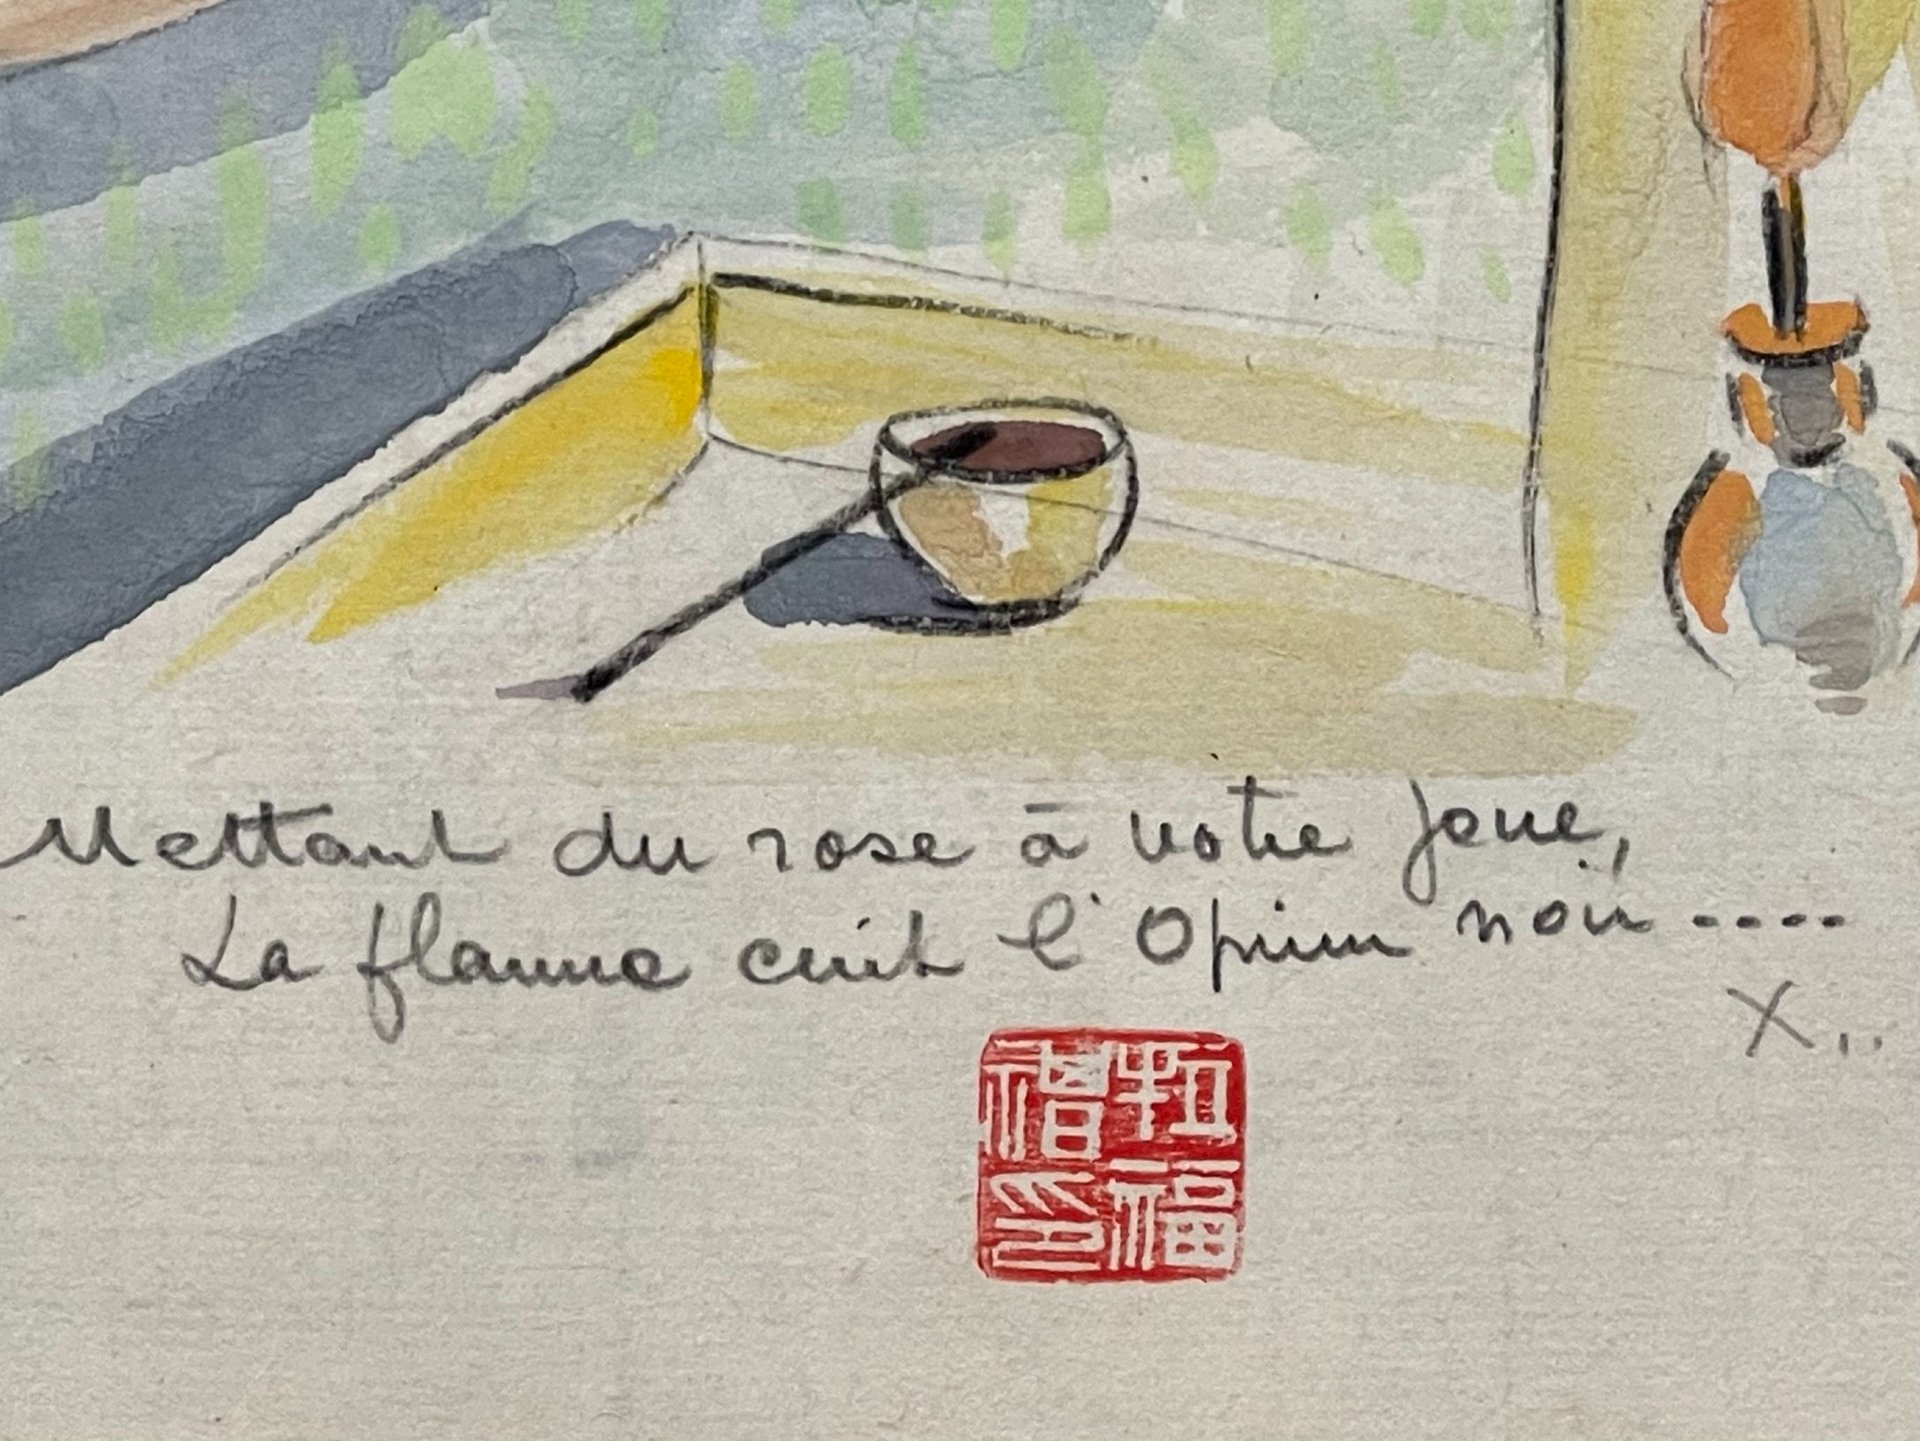 Mettant du rose à votre joue,
La flamme cuit l'Opium noir ....
X...
拉福
印